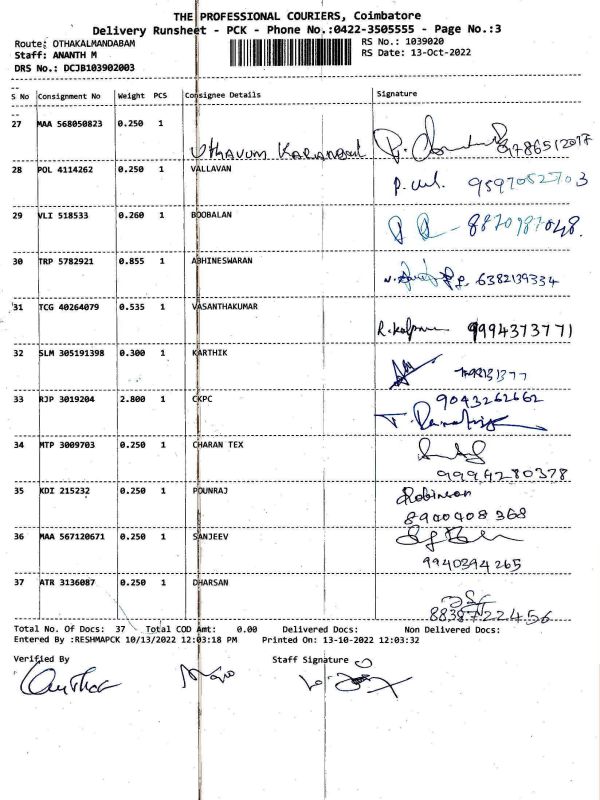 THE PROFESSIONAL COURIERS, Coimbatore
Delivery Runsheet - PCK - Phone No.:0422-3505555 - Page No.:3
Route: OTHAKALMANDABAM RS No.: 1039020
Staff: ANANTH M RS Date: 13-Oct-2022
DRS No.: DCJB103902003
S No Consignment No Weight PCS Consignee Details Signature
27 MAA 568050823 0.250 1
Uthavum Karangal
28 POL 4114262 0.250 1 VALLAVAN
9597052703
29 VLI 518533 0.260 1 BOOBALAN
8870987048.
30 TRP 5782921 0.855 1 ABHINESWARAN
6382139334
31 TCG 40264079 0.535 1 VASANTHAKUMAR
9994373771
32 SLM 305191398 0.300 1 KARTHIK
33 RJP 3019204 2.800 1 CKPC 9043262662
34 MTP 3009703 0.250 1 CHARAN TEX
9994280378
35 KDI 215232 0.250 1 POUNRAJ Robinson
8900408368
36 MAA 567120671 0.250 1 SANJEEV
9940394265
37 ATR 3136087 0.250 1 DHARSAN
8838722456
Total No. Of Docs: 37 Total COD Amt: 0.00 Delivered Docs: Non Delivered Docs:
Entered By :RESHMAPCK 10/13/2022 12:03:18 PM Printed On: 13-10-2022 12:03:32
Verified By Staff Signature